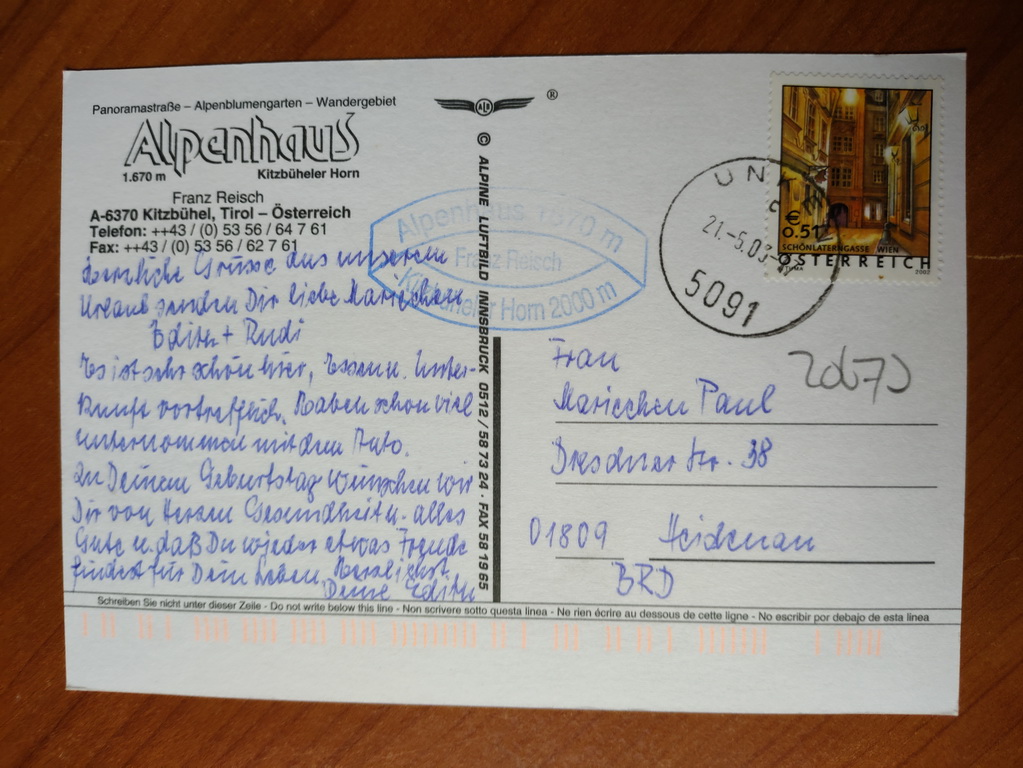 Panoramastraße – Alpenblumengarten – Wandergebiet
Alpenhaus
1.670 m Kitzbüheler Horn
Franz Reisch
A-6370 Kitzbühel, Tirol – Österreich
Telefon: ++43 / (0) 53 56 / 64 7 61
Fax: ++43 / (0) 53 56 / 62 7 61
Herzliche Grüsse aus unserem
Urlaub senden Dir liebe Mariechen
Edith + Rudi
Es ist sehr schön hier, Essen u. Unter-
kunft vortrefflich. Haben schon viel
unternommen mit dem Auto.
Zu Deinem Geburtstag wünschen wir
Dir von Herzen Gesundheit u. alles
Gute u. daß Du wieder etwas Freude
findest für Dein Leben. Herzlichst
Deine Edith
ALR
®
© ALPINE LUFTBILD INNSBRUCK 0512 / 58 73 24 · FAX 58 19 65
Alpenhaus 1670 m
Franz Reisch
Kitzbüheler Horn 2000 m
UNKEN
21.-5.03
5091
€
0.51
SCHÖNLATERNGASSE WIEN
ÖSTERREICH
2002
Frau
Mariechen Paul
Dresdner Str. 38
01809 Heidenau
BRD
Schreiben Sie nicht unter dieser Zeile - Do not write below this line - Non scrivere sotto questa linea - Ne rien écrire au dessous de cette ligne - No escribir por debajo de esta linea